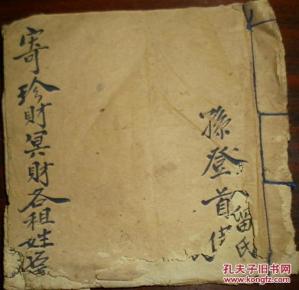 孫登首
留氏
寄珍財冥財各祖姓
孔夫子旧书网